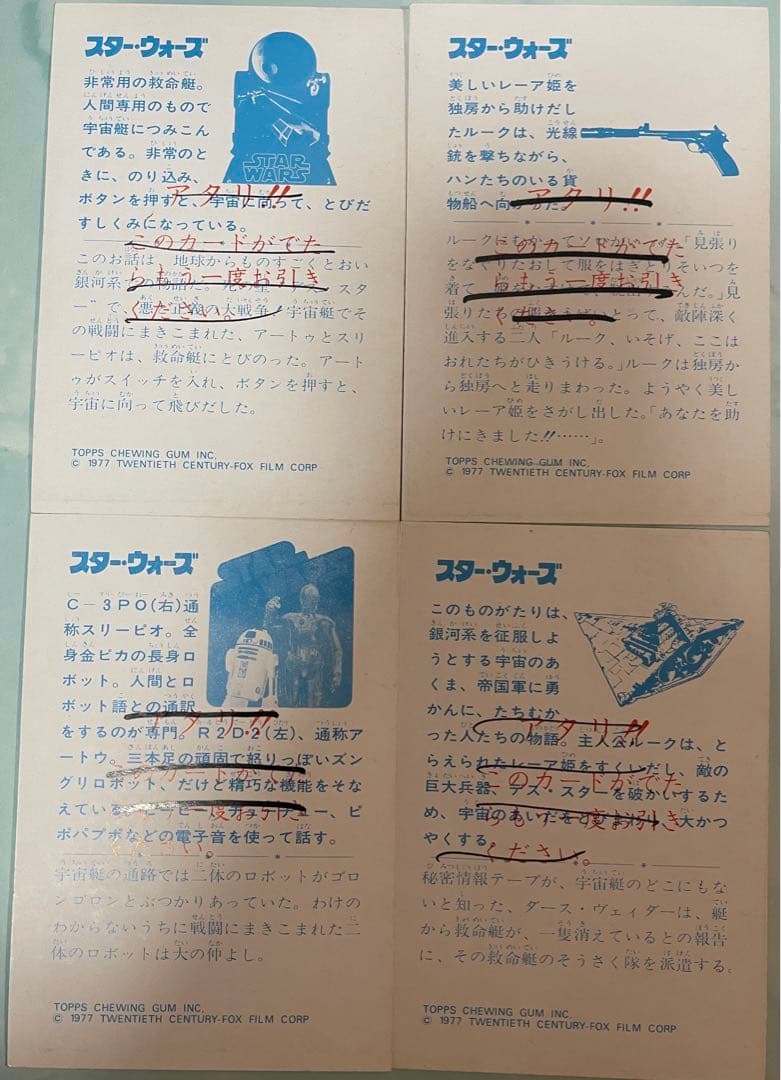 スター・ウォーズ
非常用の救命艇。
人間専用のもので
宇宙艇につみこん
である。非常のと
きに、のり込み、
ボタンを押すと、宇宙に向って、とびだ
すしくみになっている。
STAR
WARS
アタリ!!
このカードがでた
らもう一度お引き
ください。
このお話は、地球からものすごくとおい
銀河系
の物語だ。
スター
”で、悪と正義の大戦争
宇宙艇でそ
の戦闘にまきこまれた、アートゥとスリ
ーピオは、救命艇にとびのった。アート
ゥがスイッチを入れ、ボタンを押すと、
宇宙に向って飛びだした。
TOPPS CHEWING GUM INC,
© 1977 TWENTIETH CENTURY-FOX FILM CORP
スター・ウォーズ
美しいレーア姫を
独房から助けだし
たルークは、光線
銃を撃ちながら、
ハンたちのいる貨
物船へ向かった。
アタリ!!
このカードがでた
らもう一度お引き
ください。
ルークに
「見張り
をなぐりたおして服をはぎとりそいつを
着て
んだ。」見
張りたちの
とって、敵陣深く
進入する二人「ルーク、いそげ、ここは
おれたちがひきうける。」ルークは独房か
ら独房へと走りまわった。ようやく美し
いレーア姫をさがし出した。「あなたを助
けにきました!!……」。
TOPPS CHEWING GUM INC,
© 1977 TWENTIETH CENTURY-FOX FILM CORP
スター・ウォーズ
C－3PO(右)通
称スリーピオ。全
身金ピカの長身ロ
ボット。人間とロ
ボット語との通訳
をするのが専門。R2D2(左)、通称ア
ートゥ。三本足の頑固で怒りっぽいズン
グリロボット、だけど精巧な機能をそな
えている
ピ
ポパプポなどの電子音を使って話す。
アタリ!!
このカードがでた
らもう一度お引き
ください。
宇宙艇の通路では二体のロボットがゴロ
ンゴロンとぶつかりあっていた。わけの
わからないうちに戦闘にまきこまれた二
体のロボットは大の仲よし。
TOPPS CHEWING GUM INC,
© 1977 TWENTIETH CENTURY-FOX FILM CORP
スター・ウォーズ
このものがたりは、
銀河系を征服しよ
うとする宇宙のあ
くま、帝国軍に勇
かんに、たちむか
った人たちの物語。主人公ルークは、と
らえられたレーア姫をすくいだし、敵の
巨大兵器、デス・スターを破かいするた
め、宇宙のあいだを
大かつ
やくする
アタリ!!
このカードがでた
らもう一度お引き
ください。
秘密情報テープが、宇宙艇のどこにもな
いと知った、ダース・ヴェイダーは、艇
から救命艇が、一隻消えているとの報告
に、その救命艇のそうさく隊を派遣する。
TOPPS CHEWING GUM INC,
© 1977 TWENTIETH CENTURY-FOX FILM CORP